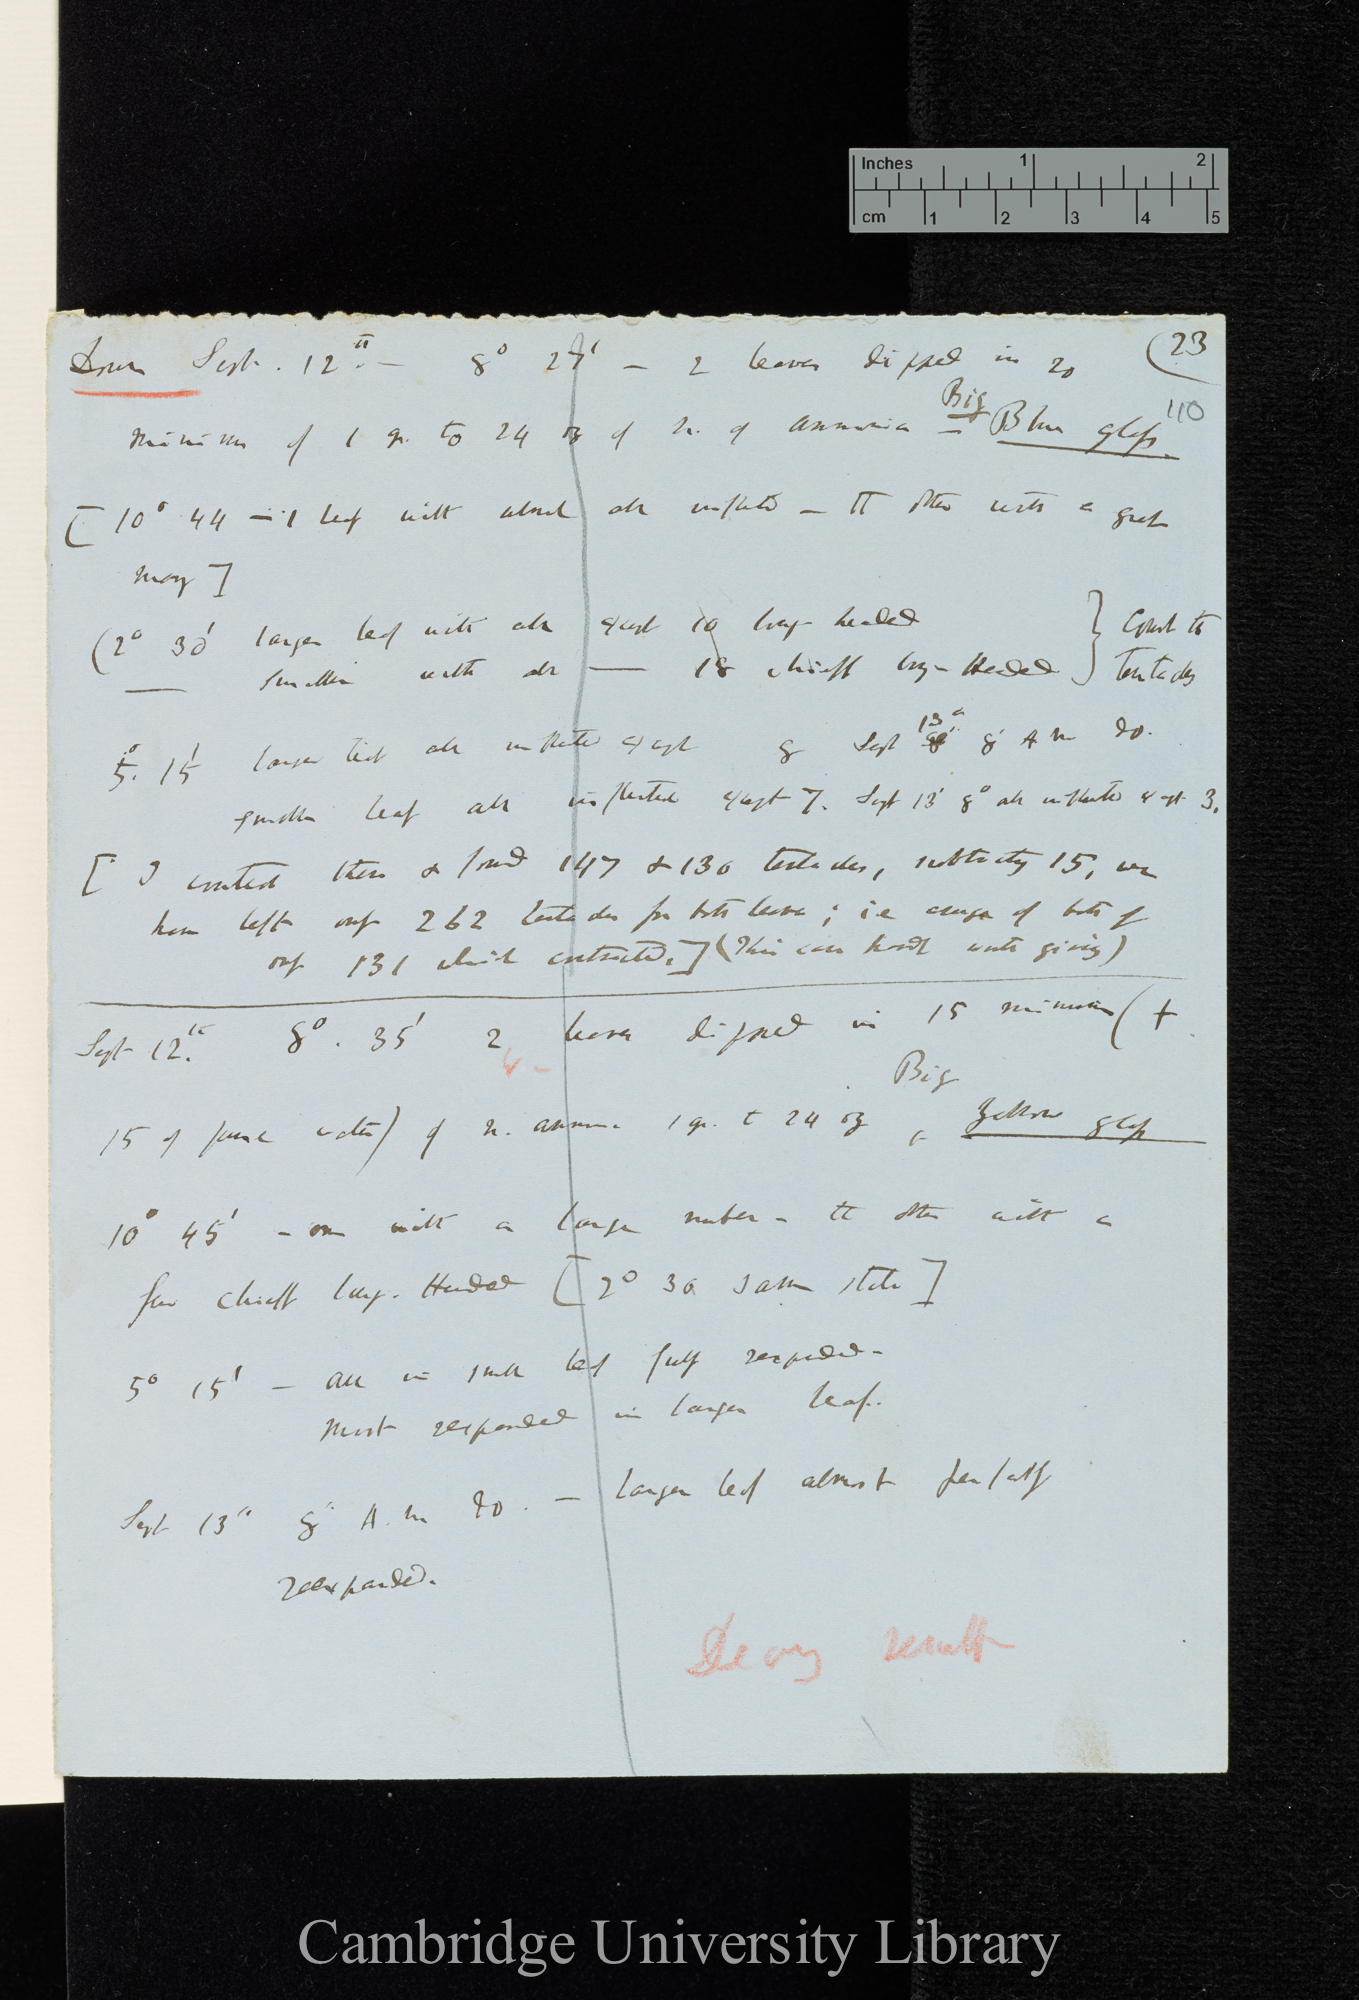 Inches 1 2
cm 1 2 3 4 5
(23
110
Drosera Sept. 12th. — 8° 27' — 2 leaves dipped in 20
minims of 1 gr. to 24 oz of n. of ammonia — Big Blue glass.
[ 10° 44 — 1 leaf with almost all inflected — the other with a great
many ]
(2° 30' larger leaf with all except 10 long-headed
— smaller with all — 18 chiefly long-Headed } Count the
tentacles
5°. 15' larger leaf all inflected except 8 Sept 13th 8° A m do.
smaller leaf all inflected except 7. Sept 13' 8° all inflected except 3.
[ I counted these & found 147 & 130 tentacles, subtracting 15, we
have left only 262 tentacles for both leaves; i.e average of both of
only 131 which contracted.] (This case hardly worth giving)
Sept 12th. 8°. 35' 2 leaves dipped in 15 minims (+
15 of pure water) of n. ammonia 1 gr. to 24 oz Big Yellow glass
10° 45' — one with a large number — the other with a
few chiefly long-Headed [2° 30 same state]
5° 15' — All in small leaf fully reexpanded —
Most reexpanded in larger leaf.
Sept 13th 8° A. m do. — larger leaf almost perfectly
reexpanded.
result
Cambridge University Library